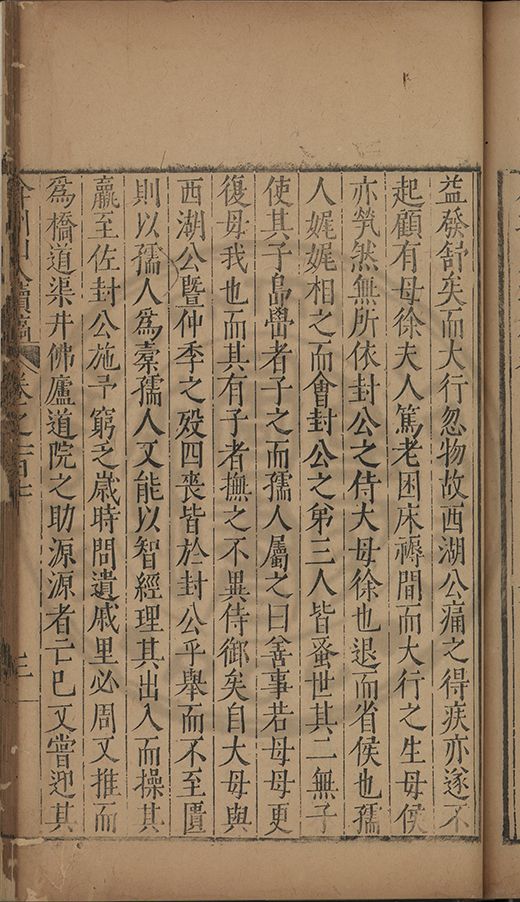 益發舒矣而大行忽物故西湖公痛之得疾亦遂不
起顧有母徐夫人篤老困床褥間而大行之生母侯
亦煢然無所依封公之侍大母徐也退而省侯也孺
人娓娓相之而會封公之弟三人皆蚤世其二無子
使其子晶嚳者子之而孺人屬之曰善事若母母更
復母我也而其有子者撫之不異侍御矣自大母與
西湖公暨仲季之歿四喪皆於封公乎舉而不至匱
則以孺人為橐孺人又能以智經理其出入而操其
贏至佐封公施予窮乏歲時問遺戚里必周又推而
為橋道渠井佛廬道院之助源源者亡已又嘗迎其
山人續稿 卷之一百